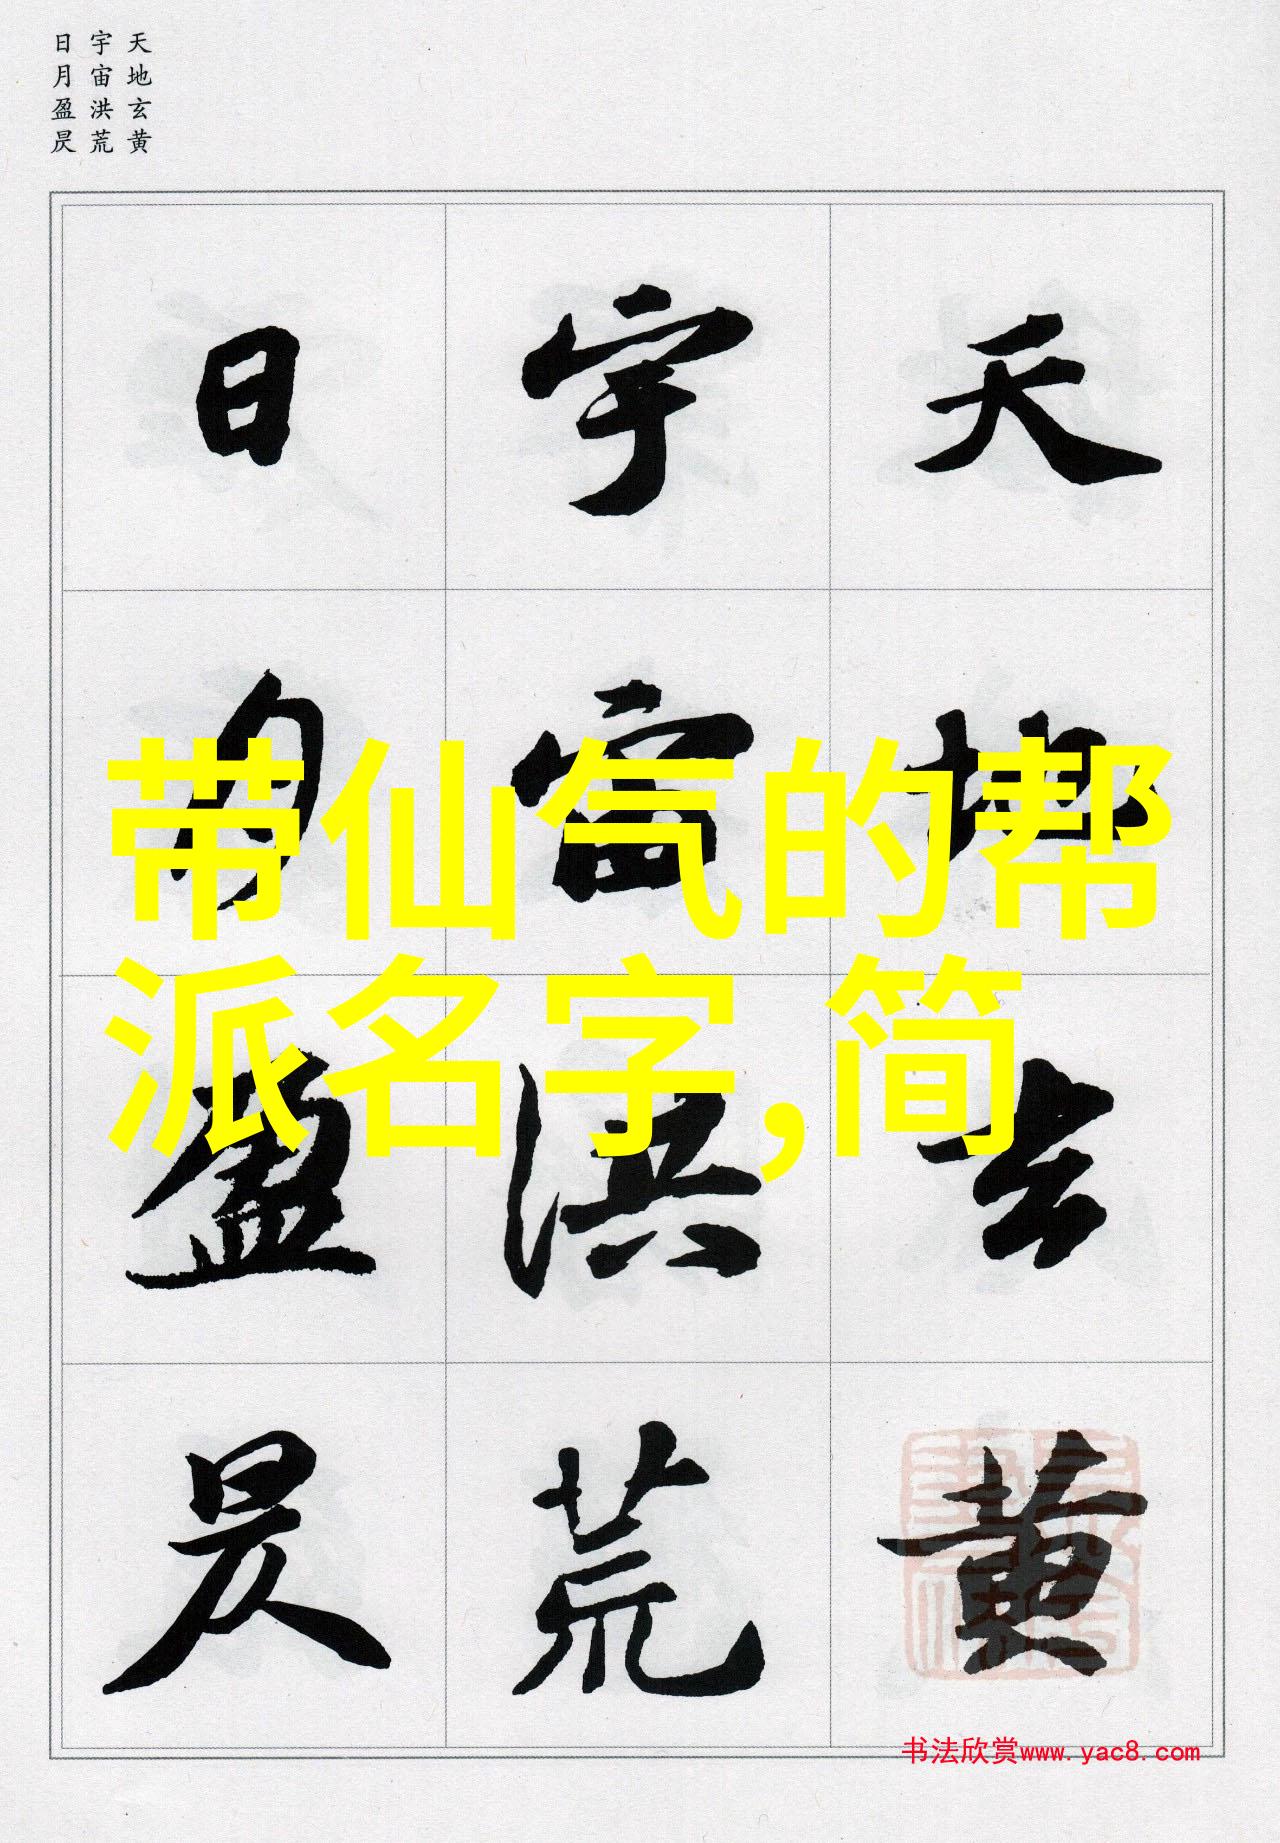 天地玄黄
宇宙洪荒
日月盈昃
天地玄黄
宇宙洪荒
日月盈昃
带仙气的帮
派名字,简
书法欣赏www.yac8.com